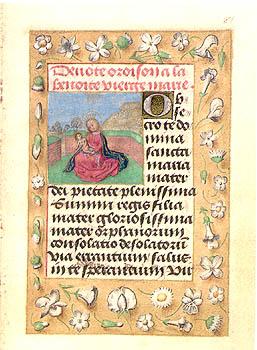 Devote oroison a la
benoite vierge marie.
Ob
secro te do
mina
sancta
maria
mater
dei pietate plenissima
Summi regis filia
mater gloriosissima
mater orphanorum
consolatio desolatoru
via errantium salus
in te sperantium vir